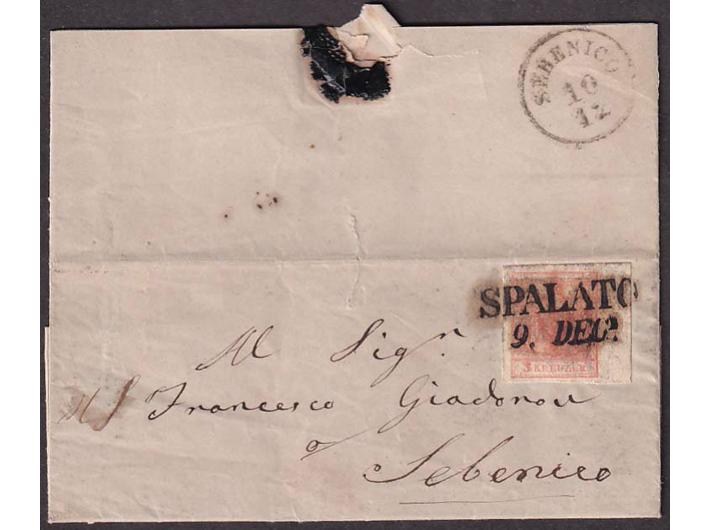 SEBENICO
10
12
SPALATO
9. DECR
3 KREUZER
Al Sigr.
Francesco
a
Sebenico